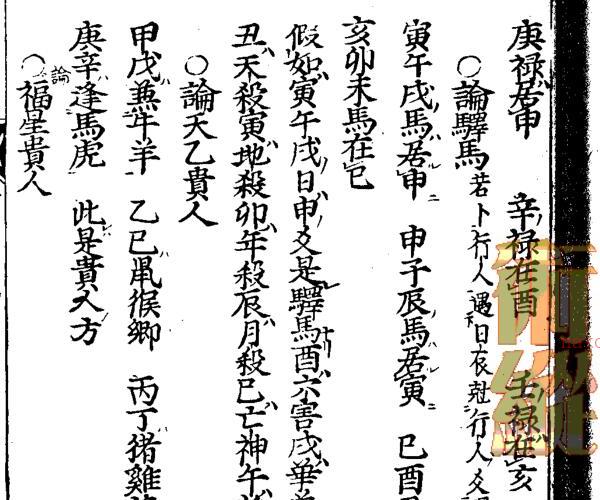 庚祿居申　辛祿在酉　壬祿在亥
○論驛馬 若卜行人遇日辰尅行人爻
寅午戌馬居申　申子辰馬居寅　巳酉丑
亥卯未馬在巳
假如寅午戌日申爻是驛馬酉六害戌華盖
丑天殺寅地殺卯年殺辰月殺巳亡神午
○論天乙貴人
甲戊兼牛羊　乙巳鼠猴鄉　丙丁猪雞
庚辛逢馬虎　此是貴人方
○論福星貴人